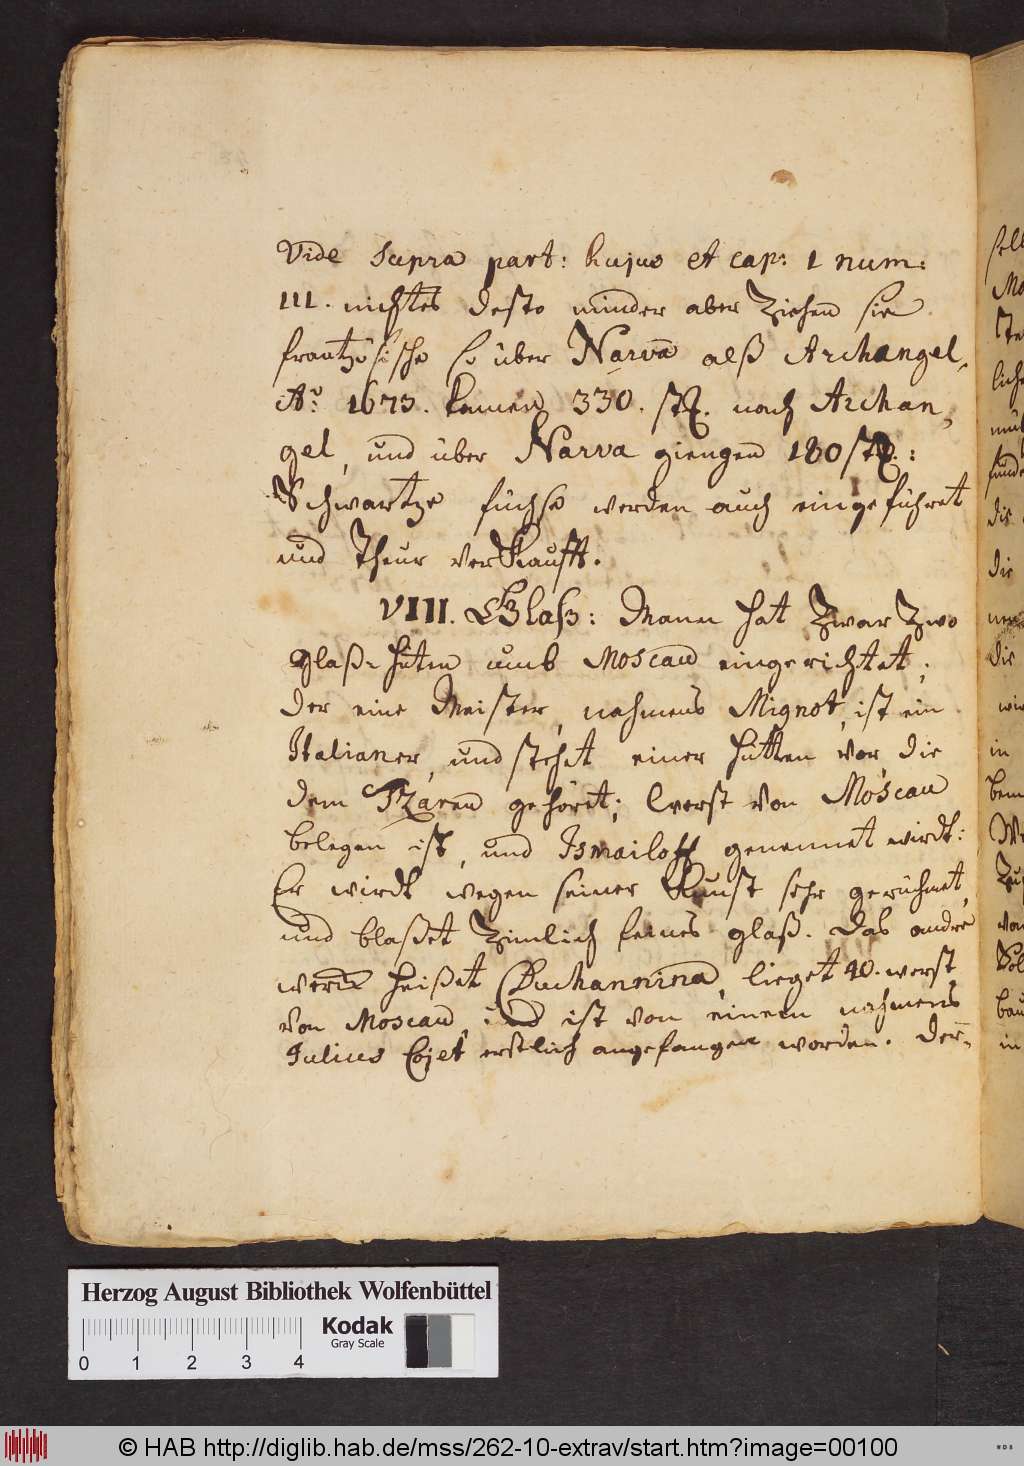 Vide supra part: hujus et cap: 1 num:
III. nichtes desto minder aber Ziehen sie
frantzösische so über Narva alß Archangel,
Aº 1673. kamen 330. stk. nach Archan,
gel, und über Narva giengen 180 stk.:
Schwartze füchse werden auch eingeführet
und Theur verkaufft.
VIII. Glaß: Mann hat Zwar Zwo
glaß-hüten umb Moscau eingerichtet;
der eine Meister, nahmens Mignot, ist ein
Italianer, und stehet einer hütten vor die
dem Tzaren gehöret; werst von Moscau
belegen ist, und Ismailoff genennet wirdt:
Er wirdt wegen seiner Kunst sehr gerühmet,
und blaßet Zimlich feines glaß. Das andre
werck heißet Duchannina, lieget 40. werst
von Moscau, und ist von einem nahmens
Julius Cojet erstlich angefangen worden. Der-
Herzog August Bibliothek Wolfenbüttel
Kodak
Gray Scale
0 1 2 3 4
© HAB http://diglib.hab.de/mss/262-10-extrav/start.htm?image=00100